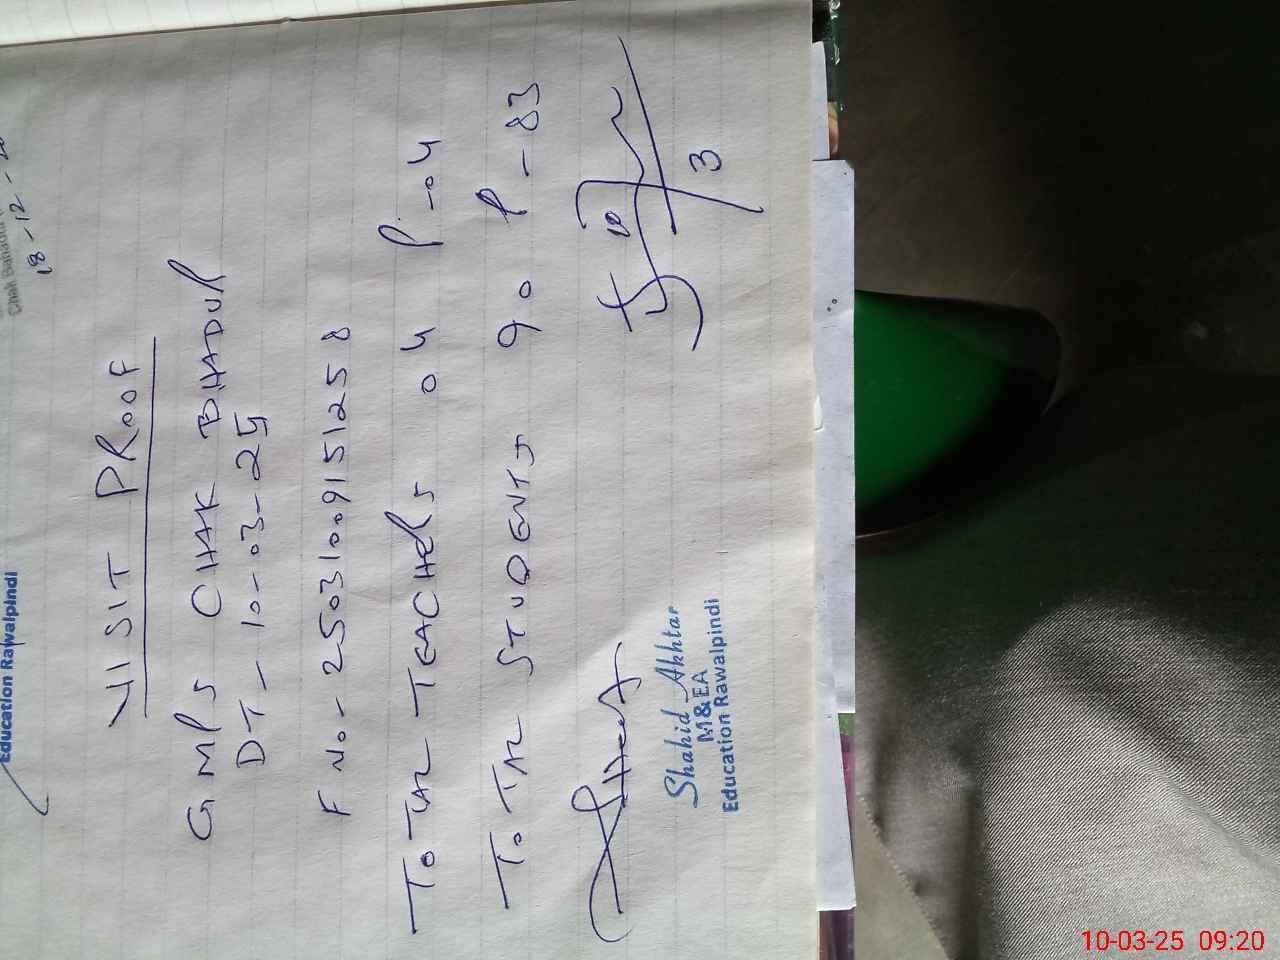 Education Rawalpindi
18-12-
VISIT PROOF
GMPS CHAK BHADUR
DT-10-03-25
F No-25031009151258
TOTAL TEACHERS 04 P-04
TOTAL STUDENTS 90 P-83
10
3
Shahid Akhtar
M&EA
Education Rawalpindi
10-03-25 09:20